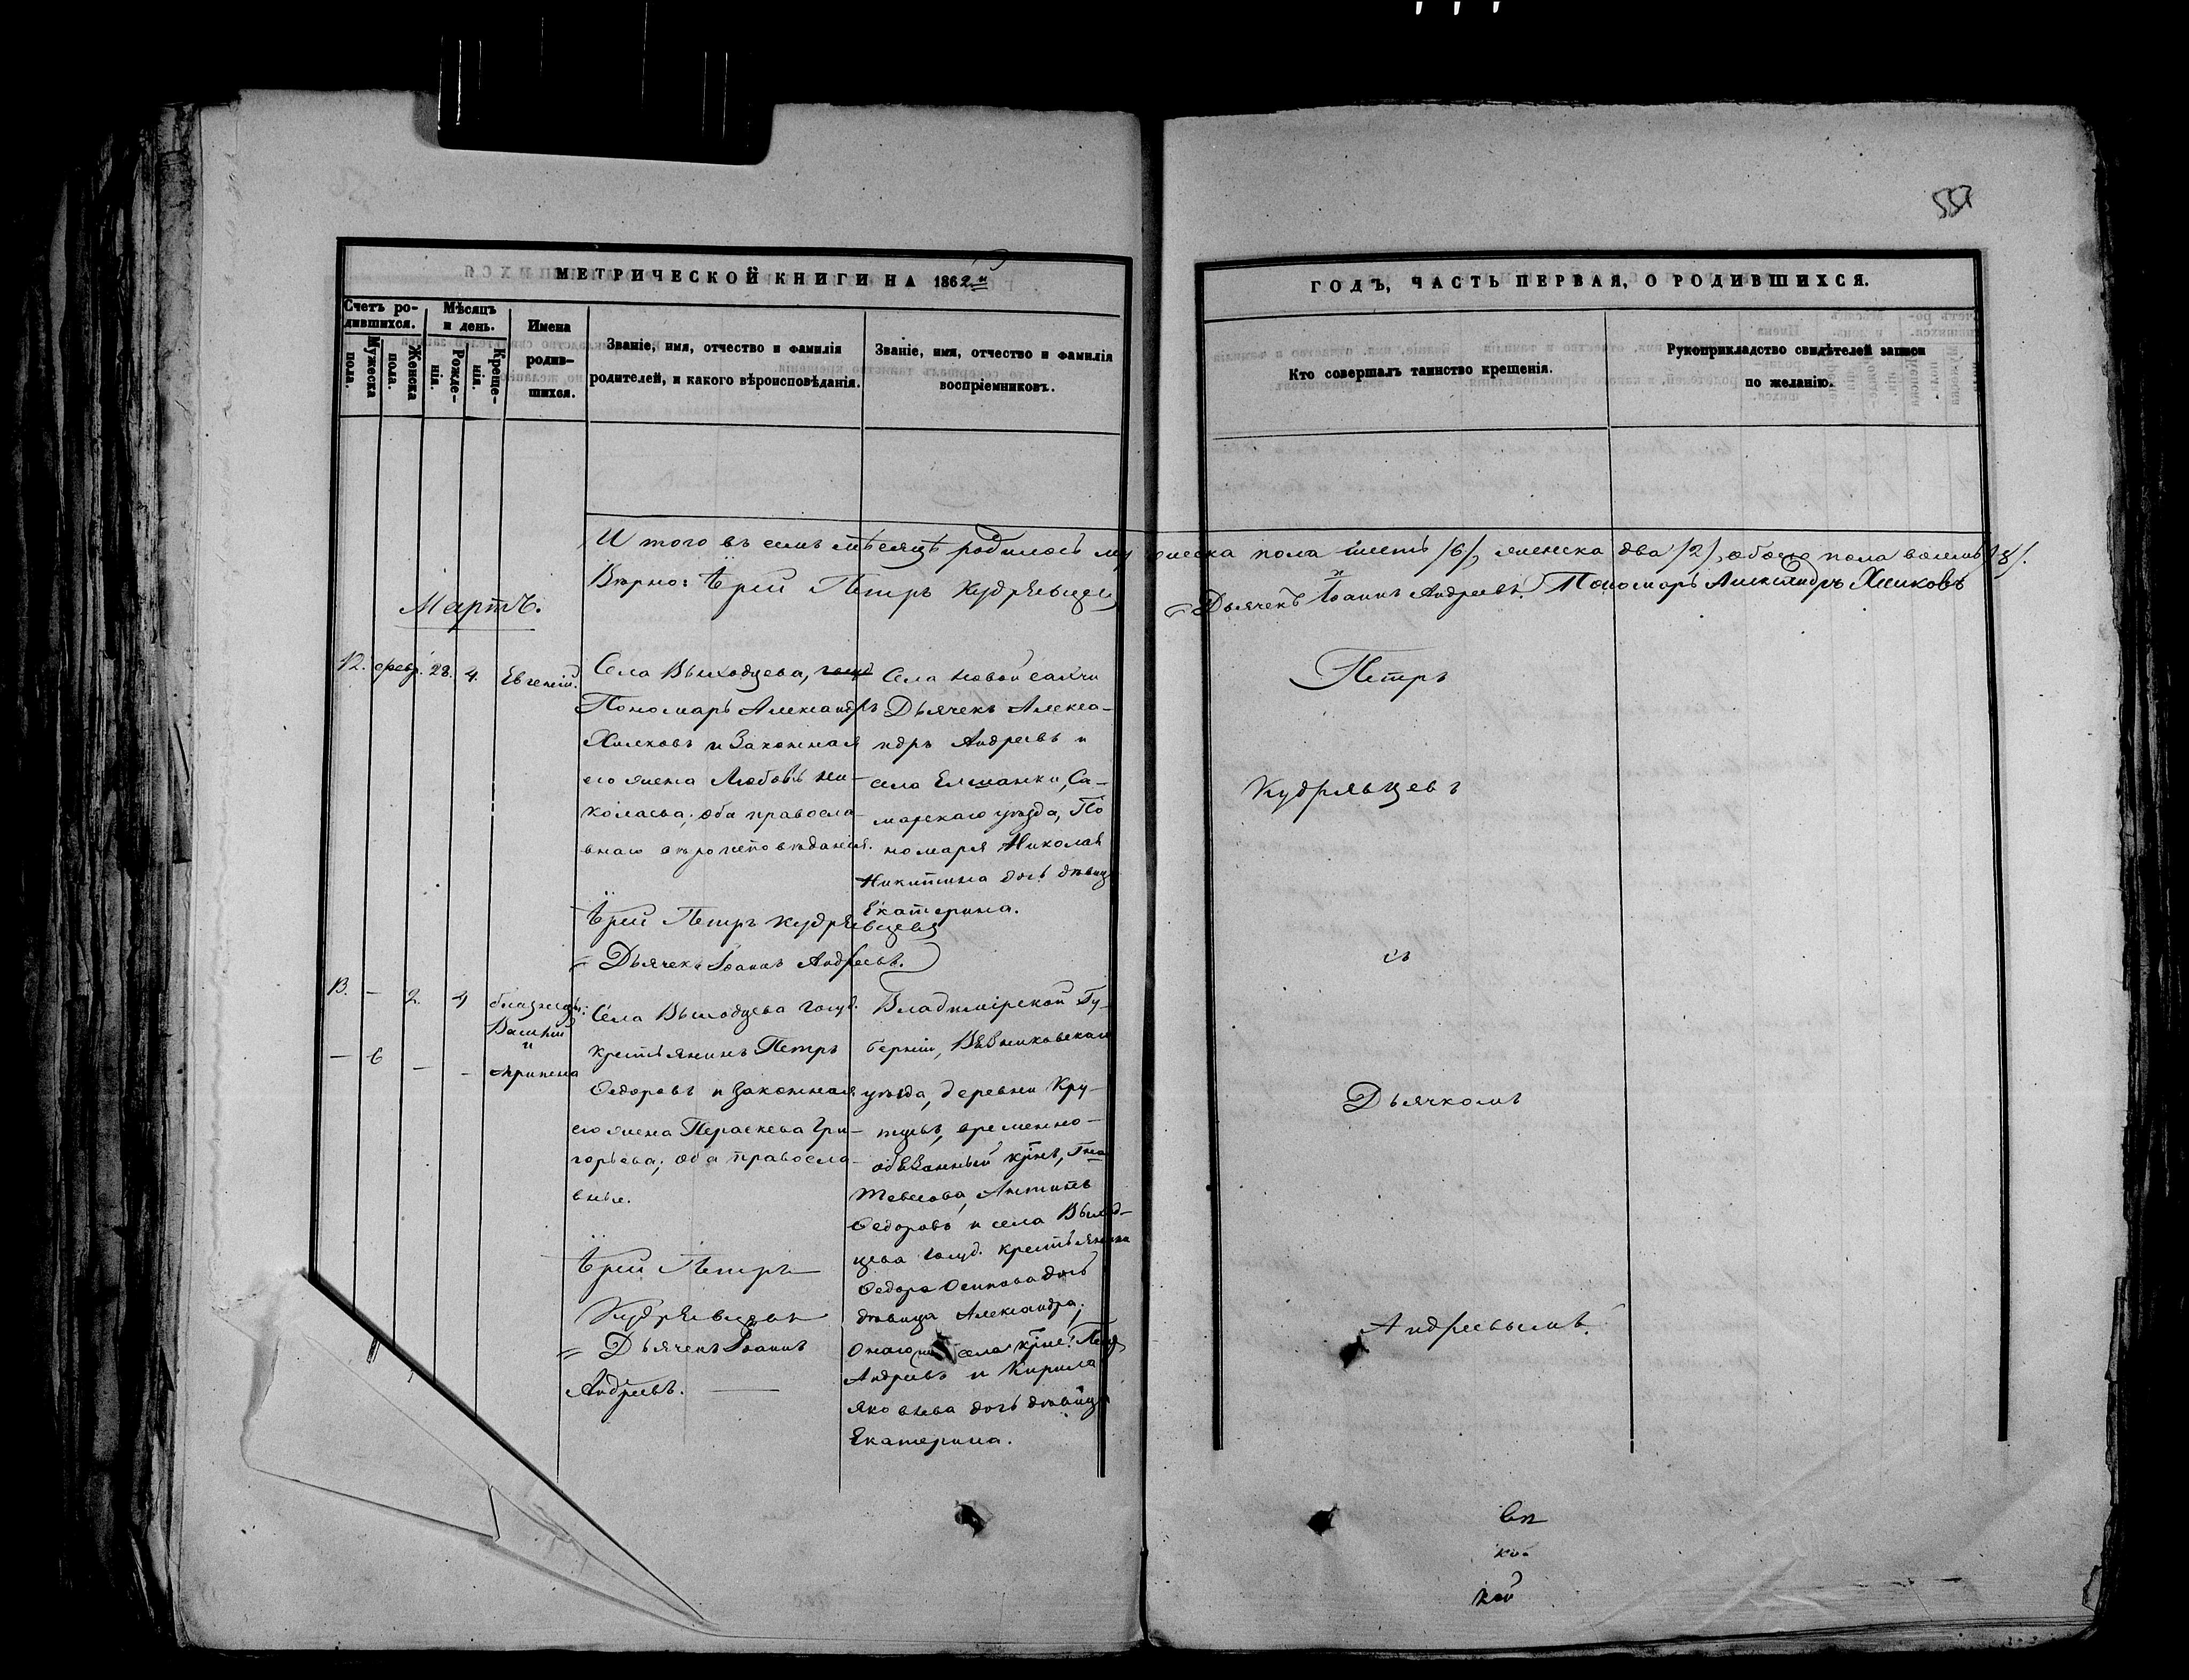 557
МЕТРИЧЕСКОЙ КНИГИ НА 1862й
ГОДЪ, ЧАСТЬ ПЕРВАЯ, О РОДИВШИХСЯ.
Счетъ ро-
дившихся.
Мужеска
пола.
Женска
пола.
Мѣсяцъ
и день.
Рожде-
нія.
Креще-
нія.
Имена
родив-
шихся.
Званіе, имя, отчество и фамилія
родителей, и какого вѣроисповѣданія.
Званіе, имя, отчество и фамилія
воспріемниковъ.
Кто совершалъ таинство крещенія.
Рукоприкладство свидѣтелей записи
по желанію.
И того въ семъ мѣсяцѣ родилось мужеска пола шесть /6/, женска два /2/, обоего пола восемь /8/.
Вѣрно: Іерей Петръ Кудрявцевъ
Дьячекъ Іоаннъ Андреевъ. Пономарь Александръ Хилковъ
Мартъ.
12. февр. 28. 4. Евгеній.
Села Выходцева,
Пономарь Александръ
Хилковъ и Законная
его жена Любовь Ни-
колаева; оба правосла-
внаго вѣроисповѣданія.
Іерей Петръ Кудрявцевъ
Дьячекъ Іоаннъ Андреевъ.
Села Новой
Дьячекъ Алекса-
ндръ Андреевъ и
села Елшанки, Са-
марскаго уѣзда, По
номаря Николая
Никитина дочь дѣвица
Екатерина.
13. - 2. 4
Василій
и
- 6 - - Агрипена
Села Выходцева госуд.
крестьянинъ Петръ
Ѳедоровъ и законная
его жена Параскева Гри-
горьева; оба правосла-
вные.
Іерей Петръ
Кудрявцевъ
Дьячекъ Іоаннъ
Андреевъ.
Владимірской Гу-
берніи, Вязниковскаго
уѣзда, деревни Кру-
временно-
обязанный
Антипъ
Ѳедоровъ и села Выход-
цева госуд. крестьянина
Ѳедора Осипова дочь
дѣвица Александра;
села
Андреевъ и Кирила
Яковлева дочь дѣвица
Екатерина.
Петръ
Кудрявцевъ
съ
Дьячкомъ
Андреевымъ.
кой